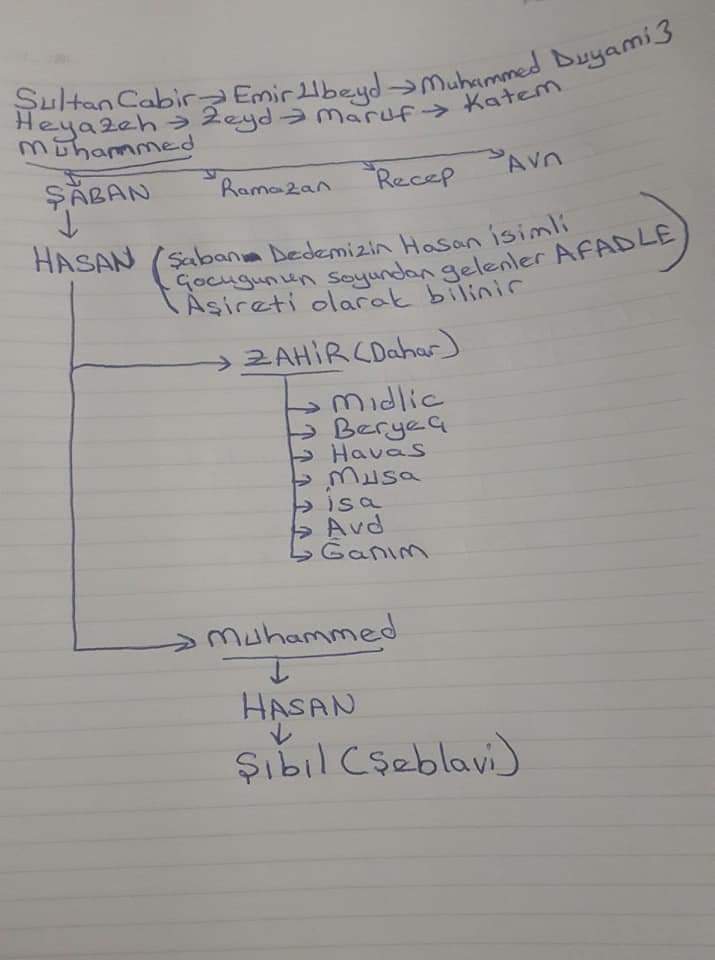 Sultan Cabir → Emir Ubeyd → Muhammed Duyami3
Heyazeh → Zeyd → Maruf → Katem
Muhammed
ŞABAN Ramazan Recep Avn
HASAN (Şaban Dedemizin Hasan isimli
Çocugunun soyundan gelenler AFADLE
Aşireti olarak bilinir)
ZAHİR (Dahar)
→ Mıdlic
→ Beryeg
→ Havas
→ Musa
→ İsa
→ Avd
→ Ğanım
Muhammed
HASAN
Şıbıl (Şeblavi)